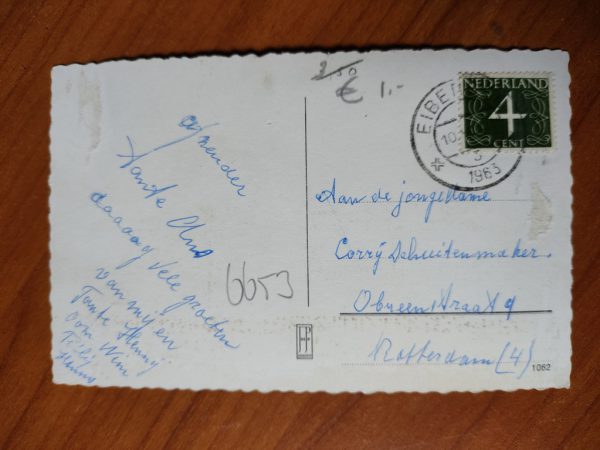 afzender
Tante Ans
daaaag Vele groeten
van mij en
Tante Henny
oom Wim
Henny
6653
2,50
€ 1,-
EIBE
10
1963
NEDERLAND
4
CENT
Aan de jongedame
Corrÿ Schuitenmaker.
Obreenstraat 9
Rotterdam (4)
1062